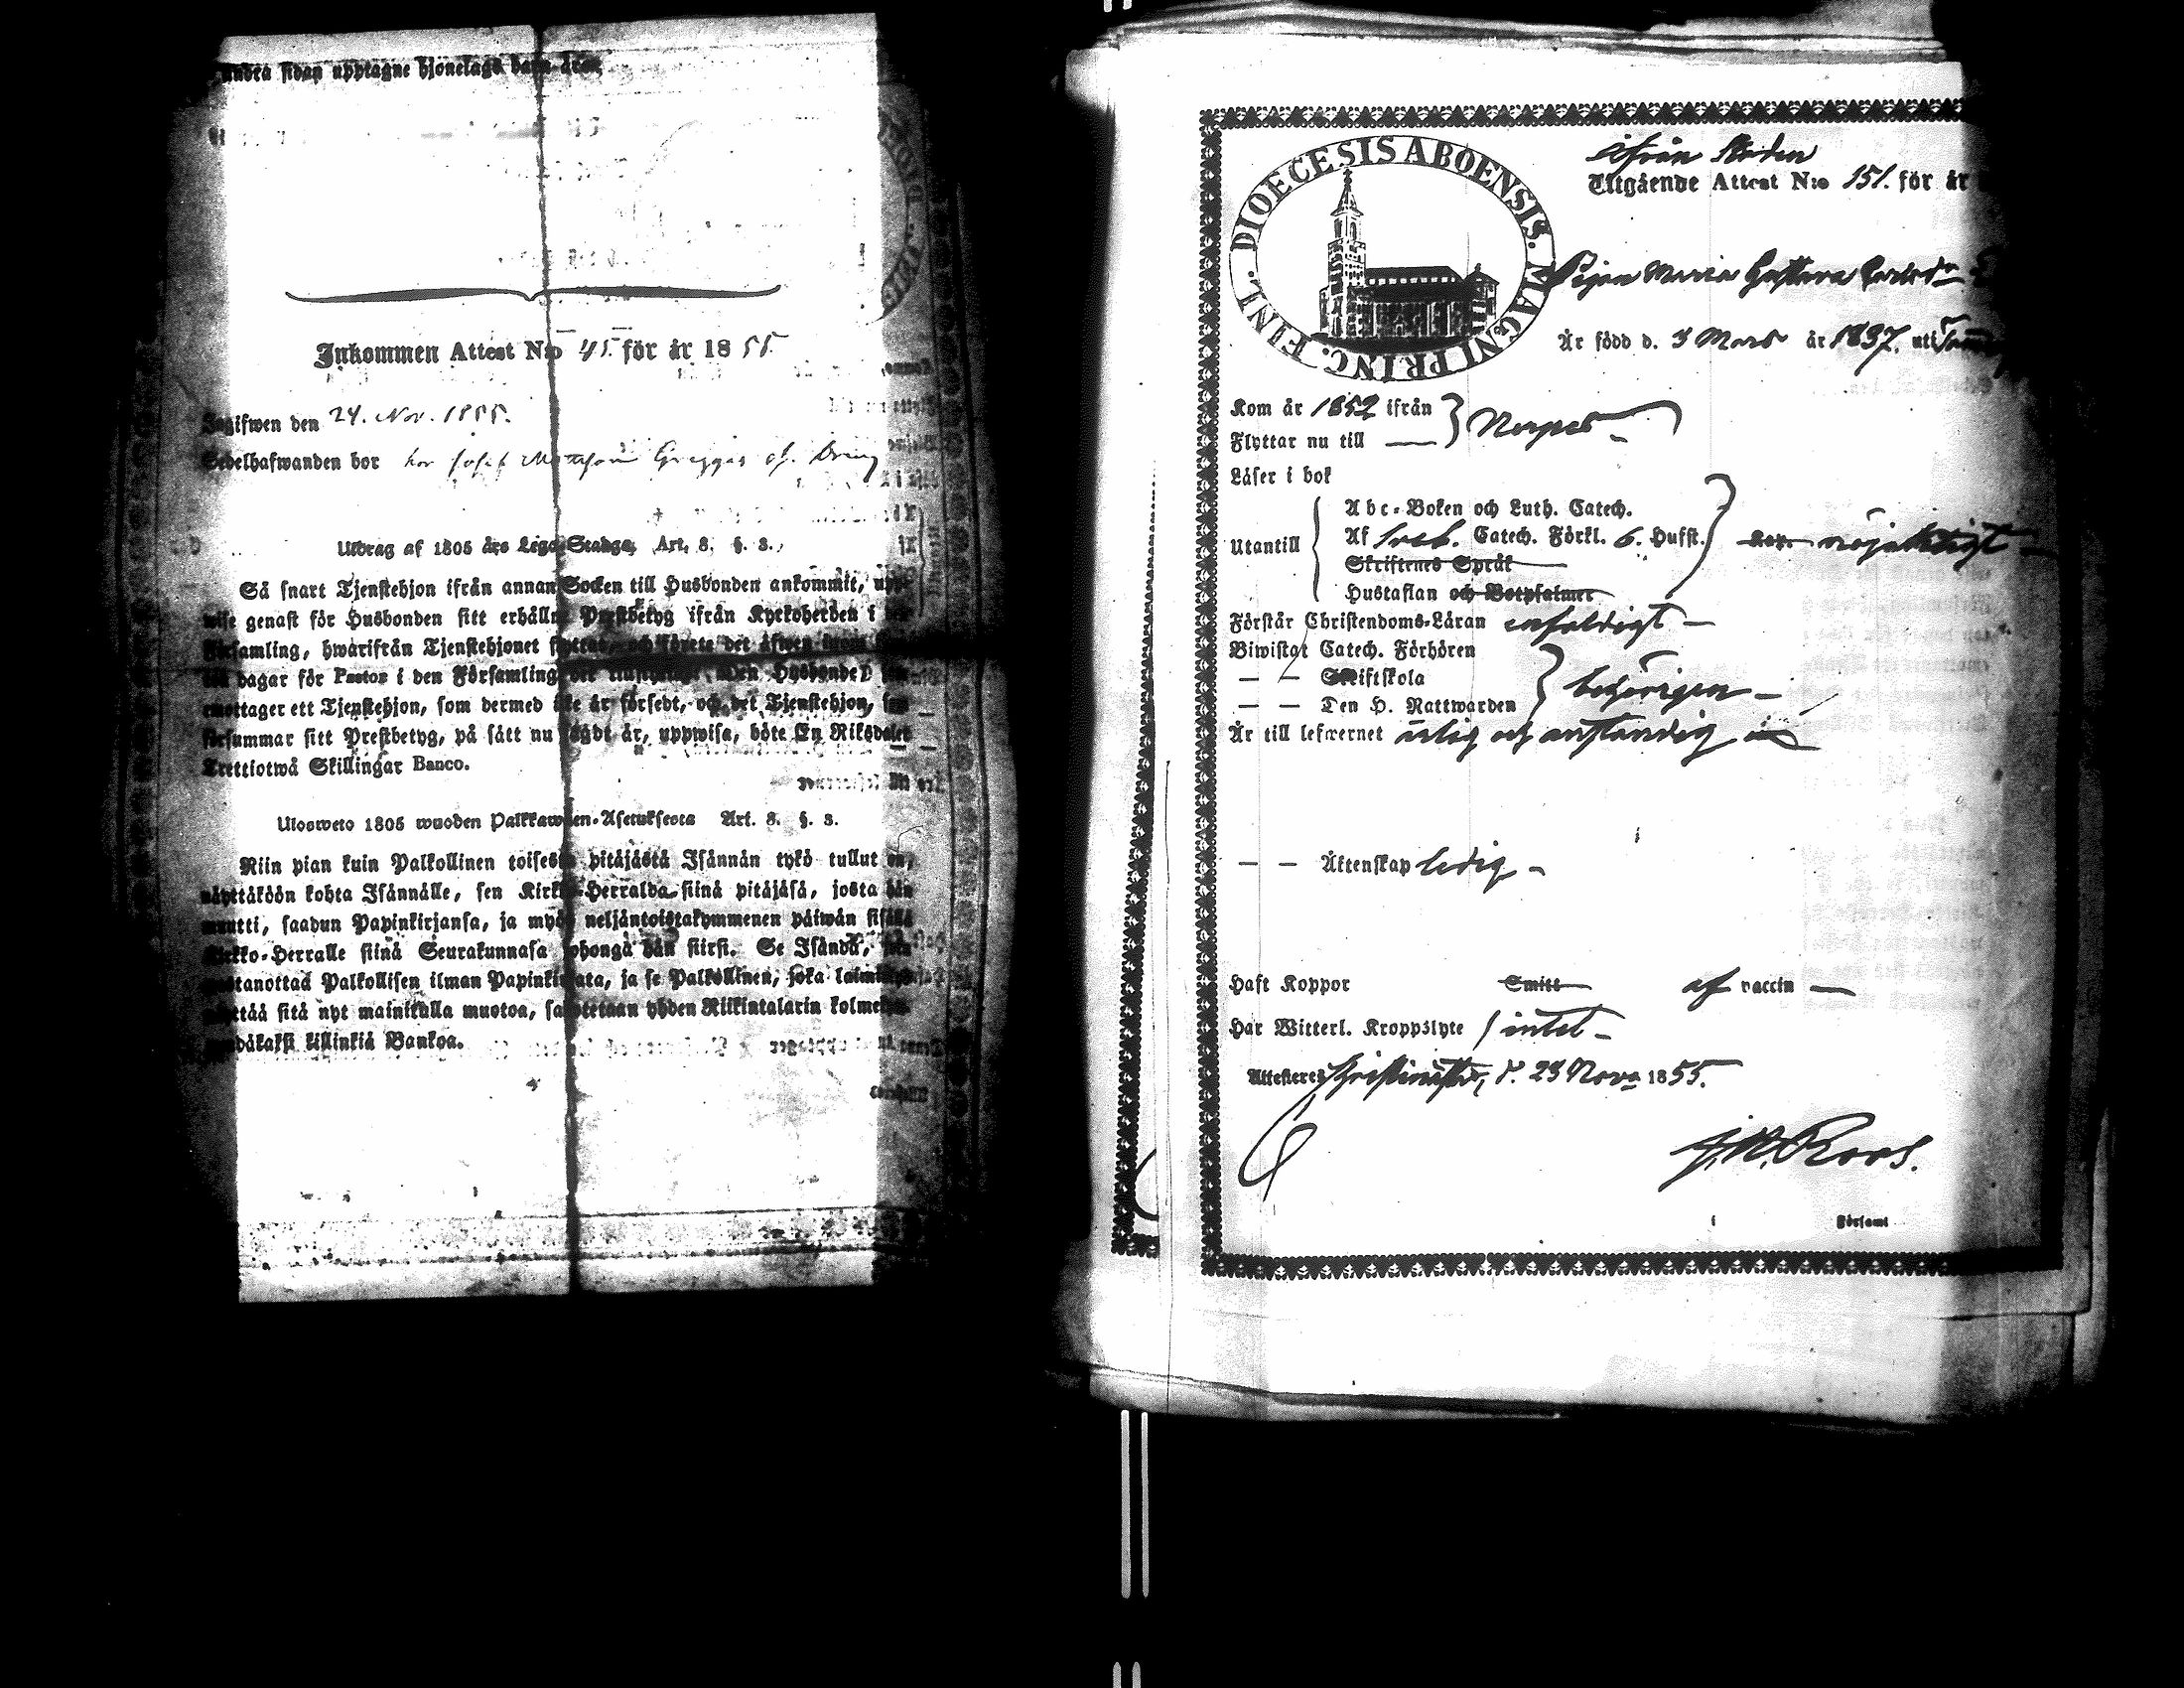 andra sidan upptagne hjonelags barn äro:
Inkommen Attest N:o 45. för år 1855.
Ingifwen den 24. Nov. 1855.
Sedelhafwanden bor hos Josef Mattsson Greggas
Utdrag af 1805 års Lego-Stadga, Art. 8. §. 3.,
Så snart Tjenstehjon ifrån annan Socken till Husbonden ankommit, upp-
wise genast för Husbonden sitt erhållne Prestbetyg ifrån Kyrkoherden i den
Församling, hwarifrån Tjenstehjonet flyttat, och förete det äfwen inom
dagar för Pastor i den Församling det tillflyttat. Den Husbonde, som
emottager ett Tjenstehjon, som dermed icke är försedt, och det Tjenstehjon, som
försummar sitt Prestbetyg, på sätt nu sagdt är, uppwisa, böte En Riksdaler
Trettiotwå Skillingar Banco.
Ulosweto 1805 wuoden Palkkawäen-Asetuksesta Art. 8. §. 3.
Niin pian kuin Palkollinen toisesta pitäjästä Isännän tykö tullut on,
näyttäköön kohta Isännälle, sen Kirkko-Herralda siinä pitäjäsä, josta hän
muutti, saadun Papinkirjansa, ja myös neljäntoistakymmenen päiwän sisällä
Kirkko-Herralle siinä Seurakunnasa johonga hän siirsi. Se Isändä, joka
wastanottaa Palkollisen ilman Papinkirjata, ja se Palkollinen, joka laimin
näyttää sitä nyt mainitulla muotoa, sakotetaan yhden Riikintalarin kolmen
neldäkaksi killinkiä Bankoa.
DIOECESIS ABOENSIS. MAGNI PRINC. FINL.
ifrån Staden
Utgående Attest N:o 151. för år
Pigan Maria Gustava
Är född d. 3 Mars år 1837. uti
Kom år 1852 ifrån } Nerpes
Flyttar nu till —
Läser i bok
Abc-Boken och Luth. Catech.
Utantill Af Sveb. Catech. Förkl. 6. Hufst. nöjaktigt —
Skriftenes Språk
Hustaflan och Botpsalmer
Förstår Christendoms-Läran enfaldigt —
Biwistat Catech. Förhören
— — Skriftskola } behörigen —
— — Den H. Nattwarden
Är till lefwernet ärlig och anständig
— — Äktenskap ledig —
Haft Koppor Smitt af vaccin —
Har Witterl. Kroppslyte intet —
Attesteres Christinestad, d. 23 Nov. 1855.
J. N. Roos.
i Församl.